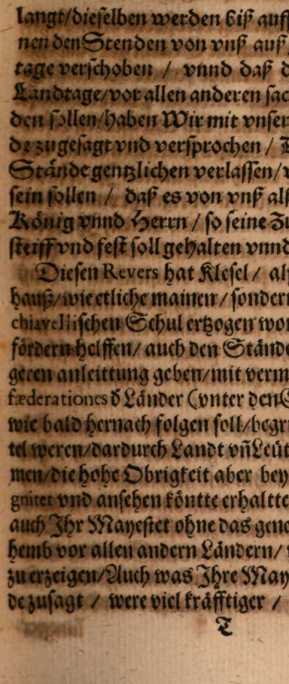 langt/dieselben werden biß auff
nen den Stenden von vnß auß
tage verschoben / vnnd daß d
Landtage/vor allen anderen sac
den sollen/haben Wir mit vnser
de zugesagt vnd versprochen /
Stände gentzlichen verlassen/v
sein sollen / daß es von vnß als
König vnnd Herrn / so seine Zu
steiff vnd fest soll gehalten vnnd
Diesen Revers hat Klesel / als
hauß/wie etliche mainen/sondern
chiavellischen Schul ertzogen wor
fördern helffen/auch den Stände
geren anleittung geben/mit verm
fæderationes d Länder (vnter den
wie bald hernach folgen soll/begr
tel weren/dardurch Landt vñ Leüt
men/die hohe Obrigkeit aber bey
gnitet vnd ansehen köntte erhaltte
auch Ihr Mayestet ohne das gene
hemb vor allen andern Ländern/
zu erzeigen/Auch was Ihre May
de zusagt / were viel kräfftiger /
T